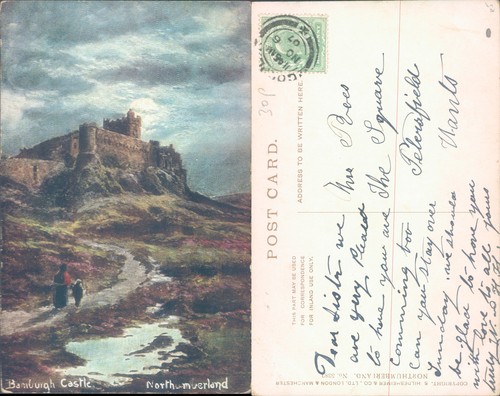 Bamburgh Castle. Northumberland
POST CARD.
ADDRESS TO BE WRITTEN HERE.
THIS PART MAY BE USED
FOR CORRESPONDENCE
FOR INLAND USE ONLY.
30p
Mrs Bocs
The Square
Petersfield
Hants
Dear Sister we
are very pleased
to have you we
comming too
Can you stay over
Sunday we should
be glad to have you
with love to all from
COPYRIGHT. S. HILDESHEIMER & CO., LTD., LONDON & MANCHESTER
NORTHUMBERLAND.